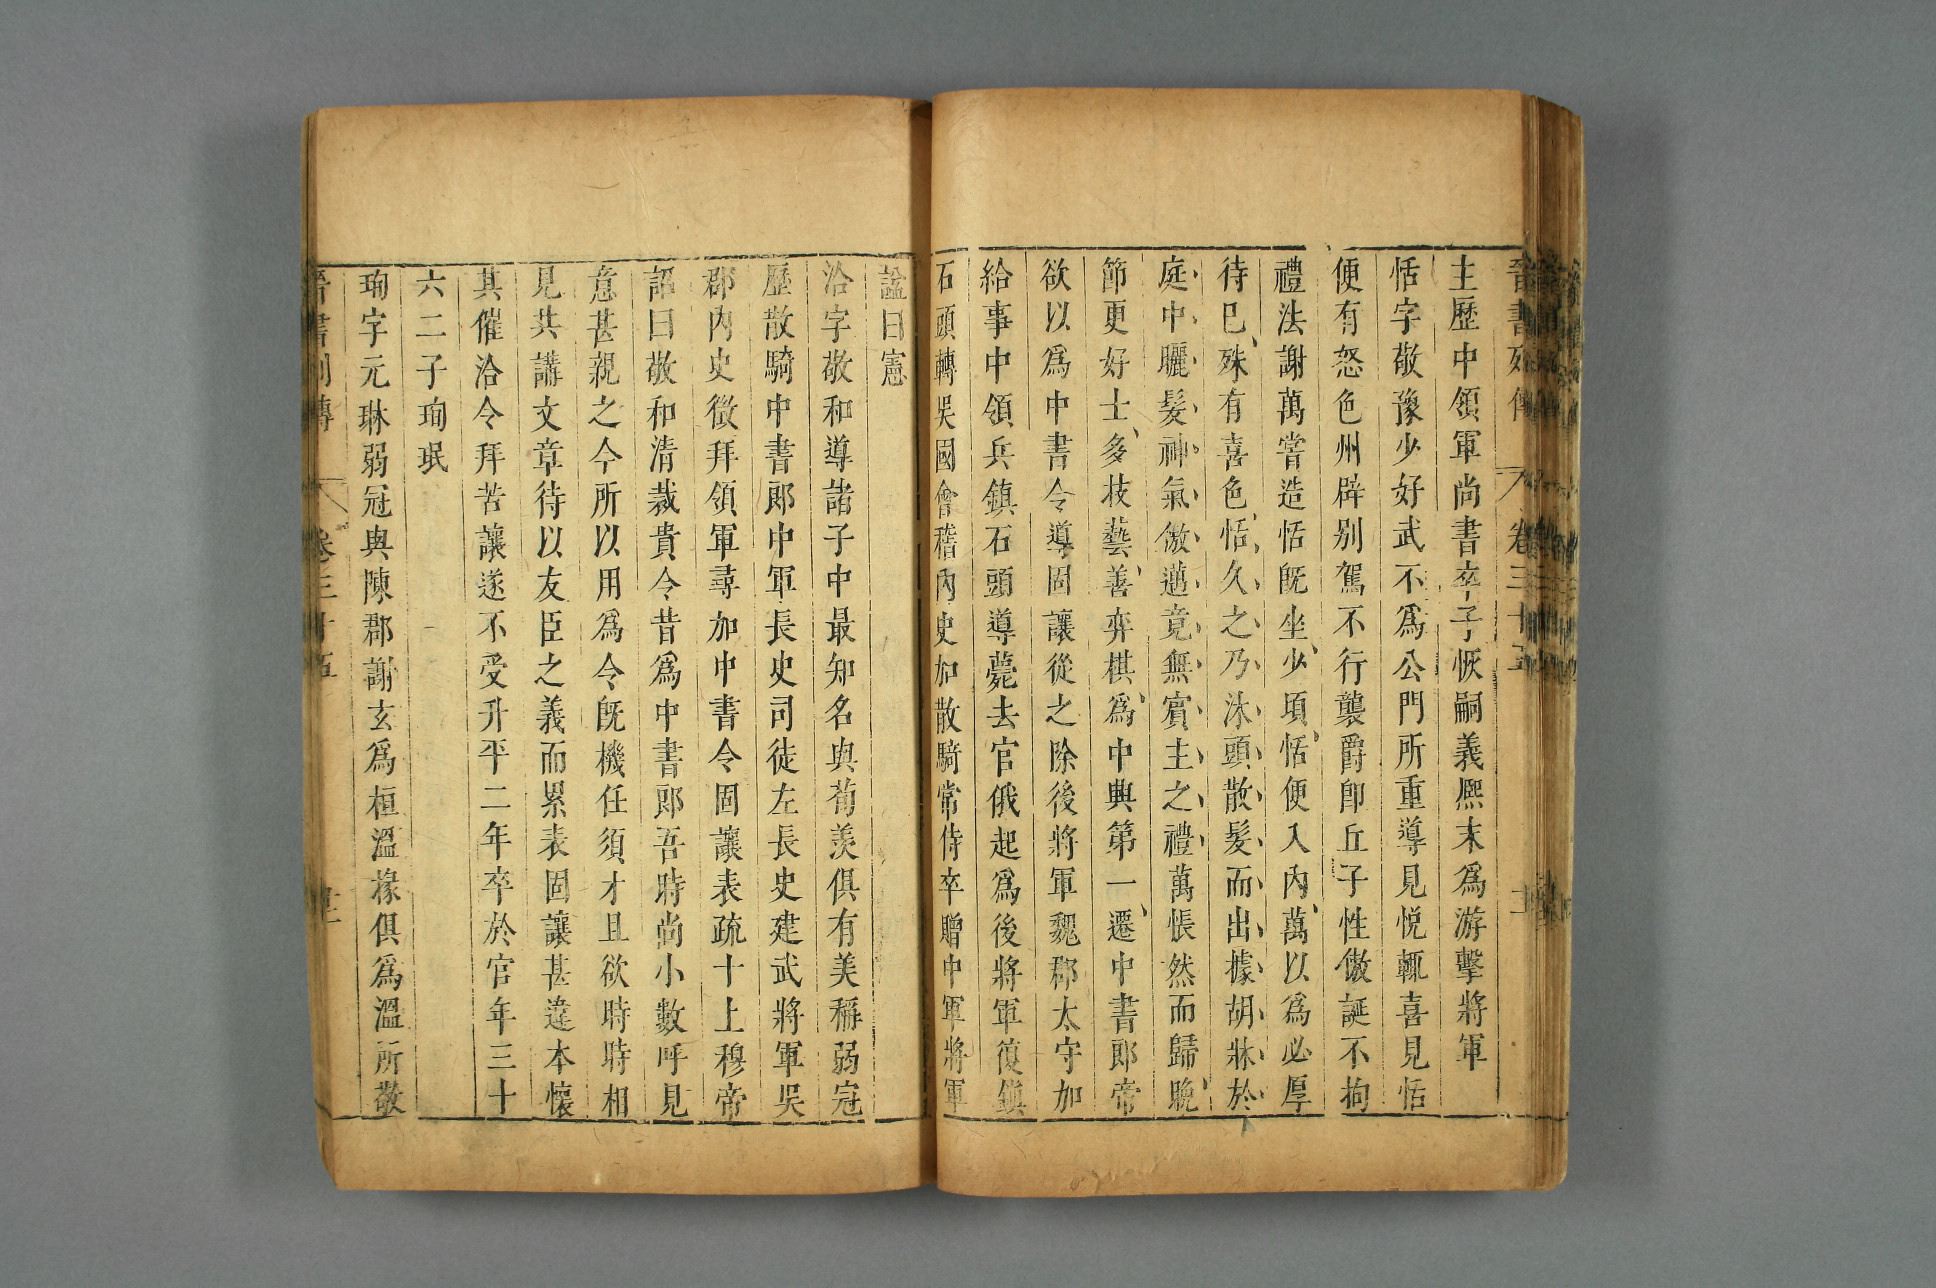 晉書列傳 卷三十五 十二
主歷中領軍尚書卒子恢嗣義熙末爲游擊將軍
恬字敬豫少好武不爲公門所重導見悅輒喜見恬
便有怒色州辟别駕不行襲爵卽丘子性傲誕不拘
禮法謝萬嘗造恬旣坐少頃恬便入內萬以爲必厚
待己殊有喜色恬久之乃沐頭散髮而出據胡牀於
庭中曬髮神氣傲邁竟無賓主之禮萬悵然而歸晚
節更好士多技藝善弈棋爲中興第一遷中書郎帝
欲以爲中書令導固讓從之除後將軍魏郡太守加
給事中領兵鎮石頭導薨去官俄起爲後將軍復鎮
石頭轉吳國會稽內史加散騎常侍卒贈中軍將軍
諡曰憲
洽字敬和導諸子中最知名與荀羨俱有美稱弱冠
歷散騎中書郎中軍長史司徒左長史建武將軍吳
郡內史徵拜領軍尋加中書令固讓表疏十上穆帝
詔曰敬和清裁貴令昔爲中書郎吾時尚小數呼見
意甚親之今所以用爲令旣機任須才且欲時時相
見共講文章待以友臣之義而累表固讓甚違本懷
其催洽令拜苦讓遂不受升平二年卒於官年三十
六二子珣珉
珣字元琳弱冠與陳郡謝玄爲桓溫掾俱爲溫所敬
晉書列傳 卷三十五